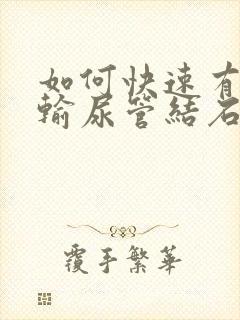 如何快速有
輸尿管結石
覆手繁華